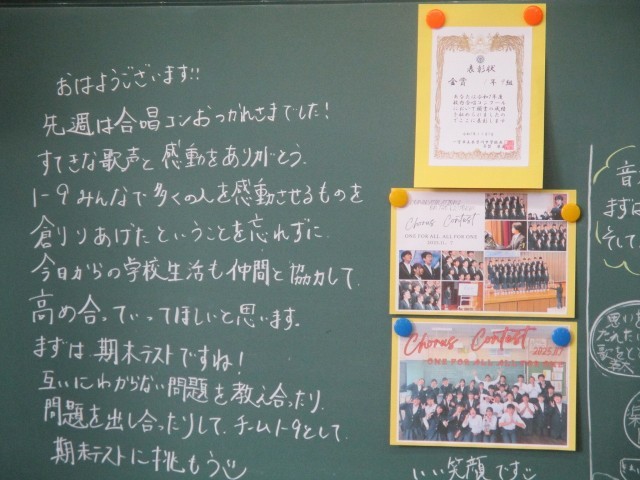 おはようございます!!
先週は合唱コンおつかれさまでした!
すてきな歌声と感動をありがとう。
1-9みんなで多くの人を感動させるものを
創りあげたということを忘れずに、
今日からの学校生活も仲間と協力して、
高め合っていってほしいと思います。
まずは期末テストですね!
互いにわからない問題を教え合ったり、
問題を出し合ったりして、チーム1-9として、
期末テストに挑もう
表彰状
金賞 1年 組
Chorus Contest
ONE FOR ALL ALL FOR ONE
Chorus Contest
ONE FOR ALL ALL FOR ONE
いい笑顔です
音
まずは
そして
思い